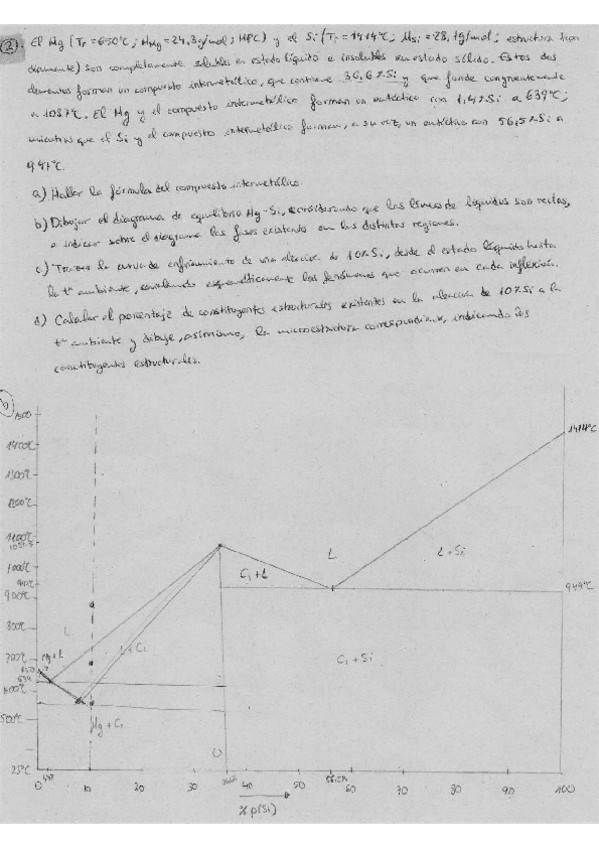 2. El Mg (Tf = 650°C; MMg = 24,3g/mol; HPC) y el Si (Tf = 1414°C; MSi = 28,1g/mol; estructura tipo
diamante) son completamente solubles en estado líquido e insolubles en estado sólido. Estos dos
elementos forman un compuesto intermetálico, que contiene 36,6%Si y que funde congruentemente
a 1087°C. El Mg y el compuesto intermetálico forman un eutéctico con 1,4%Si a 639°C;
mientras que el Si y el compuesto intermetálico forman, a su vez, un eutéctico con 56,5%Si a
a) Hallar la fórmula del compuesto intermetálico.
b) Dibujar el diagrama de equilibrio Mg-Si, considerando que las líneas de líquidus son rectas,
e indicar sobre el diagrama las fases existentes en las distintas regiones.
c) Trazar la curva de enfriamiento de una aleación de 10%Si, desde el estado líquido hasta
la tª ambiente, esquemáticamente los fenómenos que ocurren en cada inflexión.
d) Calcular el porcentaje de constituyentes estructurales existentes en la aleación de 10%Si a la
tª ambiente y dibuje, asimismo, la microestructura correspondiente, indicando los
constituyentes estructurales.
b)
1500
1400°C
1414°C
1300°C
1200°C
1100°C
1000°C
L
L+Si
C1+L
900°C
949°C
800°C
L
700°C
Mg+L
L+C1
C1+Si
650
639
600°C
500°C
Mg+C1
25°C
0 10 20 30 40 50 60 70 80 90 100
% p(Si)